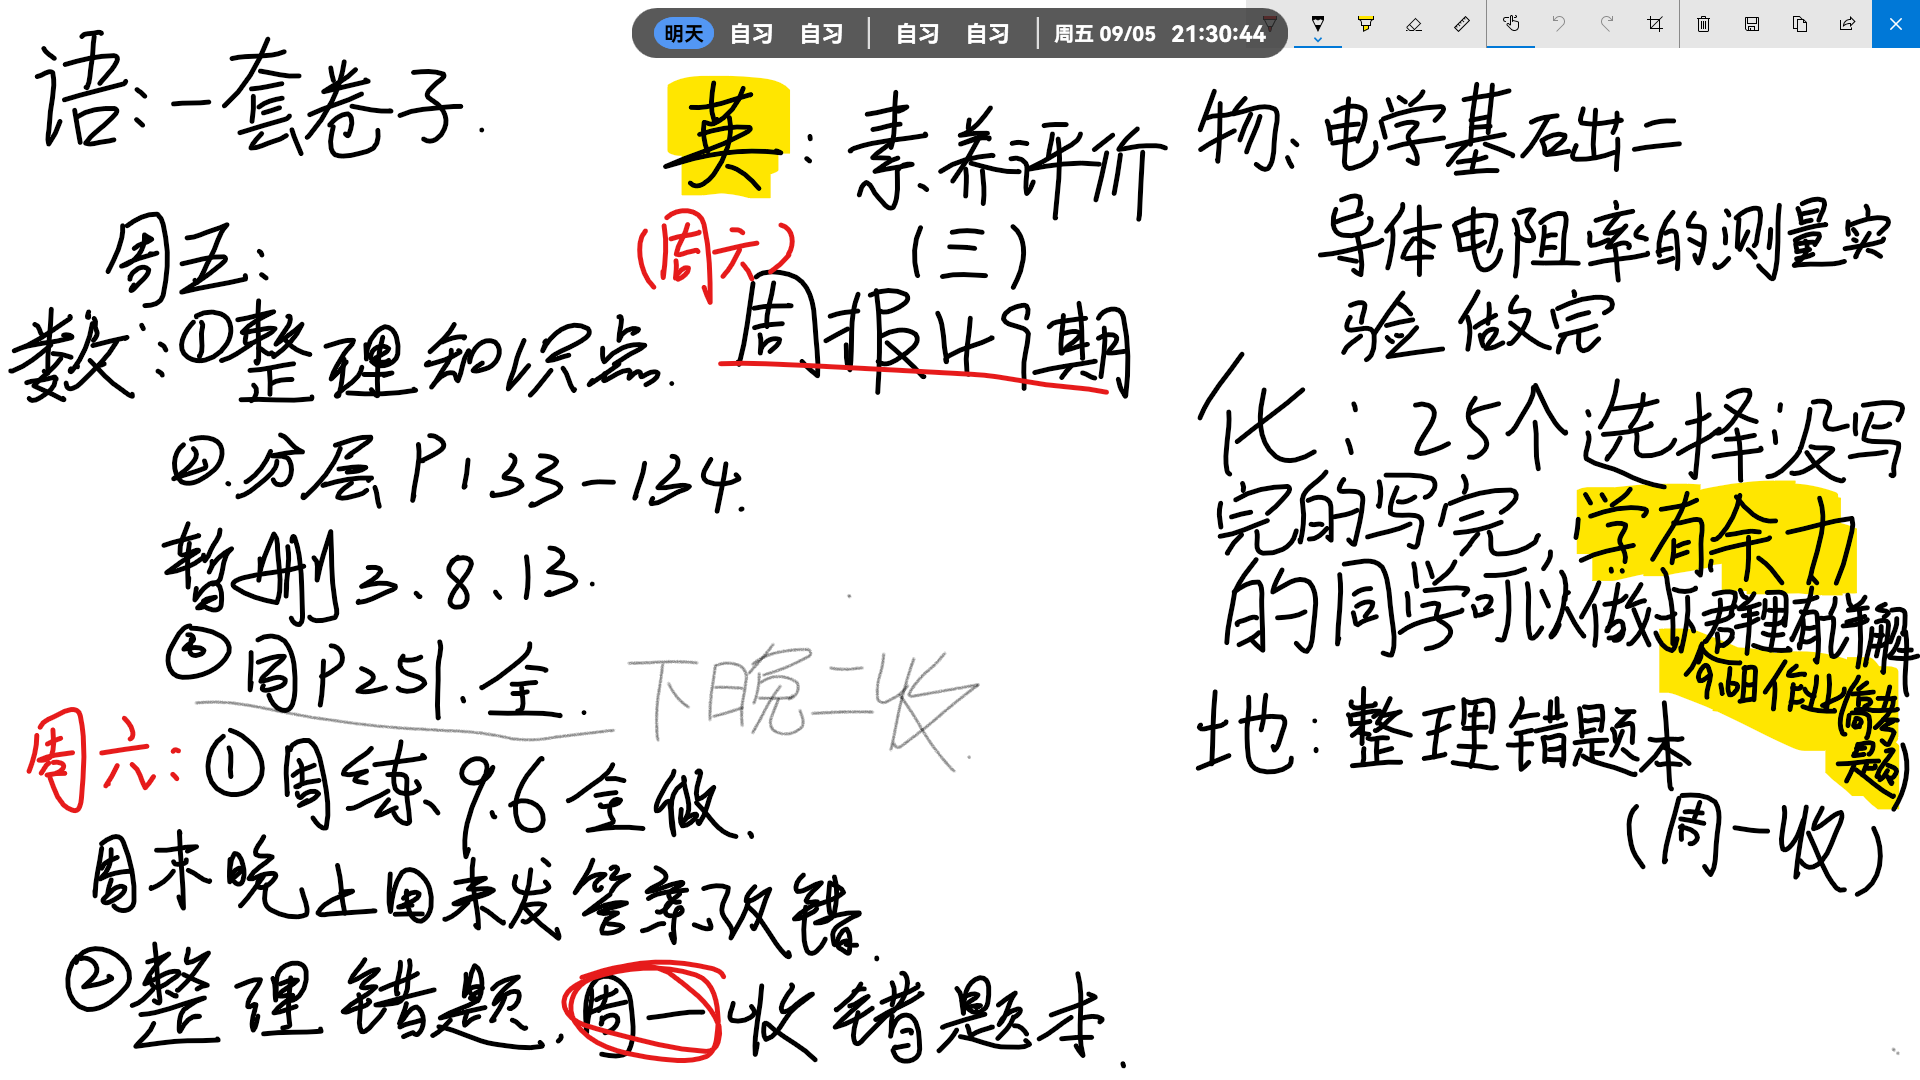 明天 自习 自习 | 自习 自习 | 周五 09/05 21:30:44
语:一套卷子.
周五:
数:①整理知识点.
②.分层P133-134.
暂删3、8、13.
③同P251.全.
下晚二收.
周六:①周练9.6全做.
周末晚上回来发答案改错.
②整理错题.周一收错题本.
英:素养评价
(三)
(周六)
周报49期
物:电学基础二
导体电阻率的测量实
验做完
化:25个选择没写
完的写完,学有余力
的同学可以做
群里有详解
9.6日作业(高考
题)
地:整理错题本
(周一收)